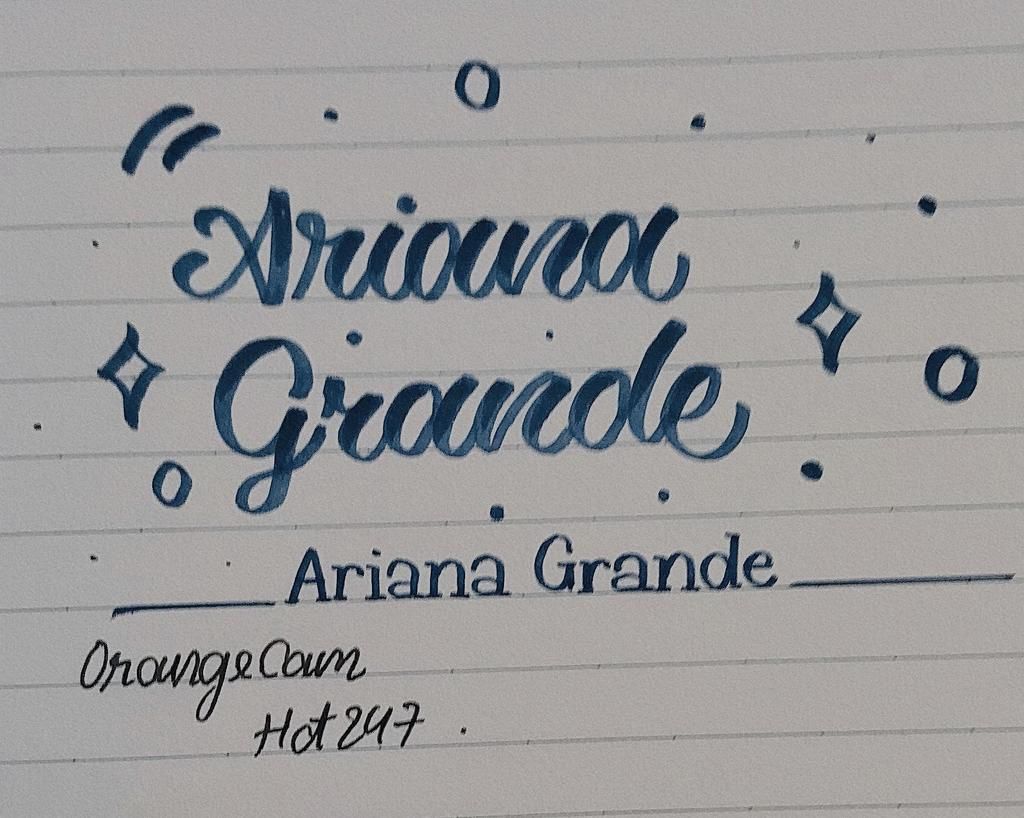 Ariana
Grande
Ariana Grande
OrangeCam
Hot247